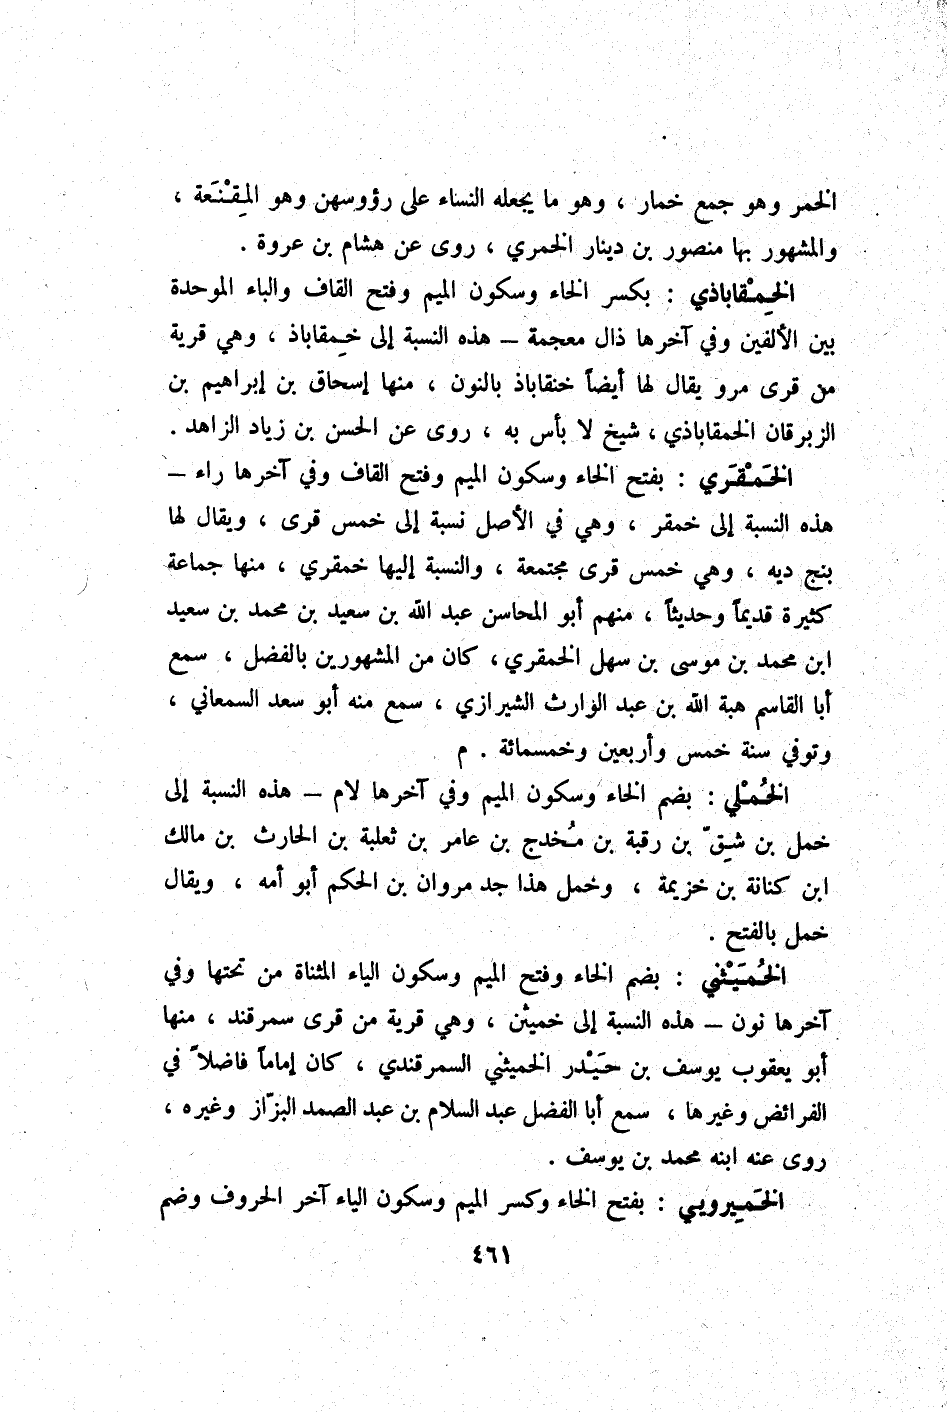 الخمر وهو جمع خمار ، وهو ما يجعله النساء على رؤوسهن وهو المِقْنَعة ،
والمشهور بها منصور بن دينار الخمري ، روى عن هشام بن عروة .
الخِمْقاباذي : بكسر الخاء وسكون الميم وفتح القاف والباء الموحدة
بين الألفين وفي آخرها ذال معجمة – هذه النسبة إلى خِمقاباذ ، وهي قرية
من قرى مرو يقال لها أيضاً خنقاباذ بالنون ، منها إسحاق بن إبراهيم بن
الزبرقان الخمقاباذي ، شيخ لا بأس به ، روى عن الحسن بن زياد الزاهد .
الخَمْقَري : بفتح الخاء وسكون الميم وفتح القاف وفي آخرها راء –
هذه النسبة إلى خمقر ، وهي في الأصل نسبة إلى خمس قرى ، ويقال لها
بنج ديه ، وهي خمس قرى مجتمعة ، والنسبة إليها خمقري ، منها جماعة
كثيرة قديماً وحديثاً ، منهم أبو المحاسن عبد الله بن سعيد بن محمد بن سعيد
ابن محمد بن موسى بن سهل الخمقري ، كان من المشهورين بالفضل ، سمع
أبا القاسم هبة الله بن عبد الوارث الشيرازي ، سمع منه أبو سعد السمعاني ،
وتوفي سنة خمس وأربعين وخمسمائة . م
الخُمْلي : بضم الخاء وسكون الميم وفي آخرها لام – هذه النسبة إلى
خمل بن شِقّ بن رقبة بن مُخدج بن عامر بن ثعلبة بن الحارث بن مالك
ابن كنانة بن خزيمة ، وخمل هذا جد مروان بن الحكم أبو أمه ، ويقال
خمل بالفتح .
الخُمَيْثني : بضم الخاء وفتح الميم وسكون الياء المثناة من تحتها وفي
آخرها نون – هذه النسبة إلى خميثن ، وهي قرية من قرى سمرقند ، منها
أبو يعقوب يوسف بن حَيْدر الخميثني السمرقندي ، كان إماماً فاضلاً في
الفرائض وغيرها ، سمع أبا الفضل عبد السلام بن عبد الصمد البزّاز وغيره ،
روى عنه ابنه محمد بن يوسف .
الخَمِيرويي : بفتح الخاء وكسر الميم وسكون الياء آخر الحروف وضم
٤٦١